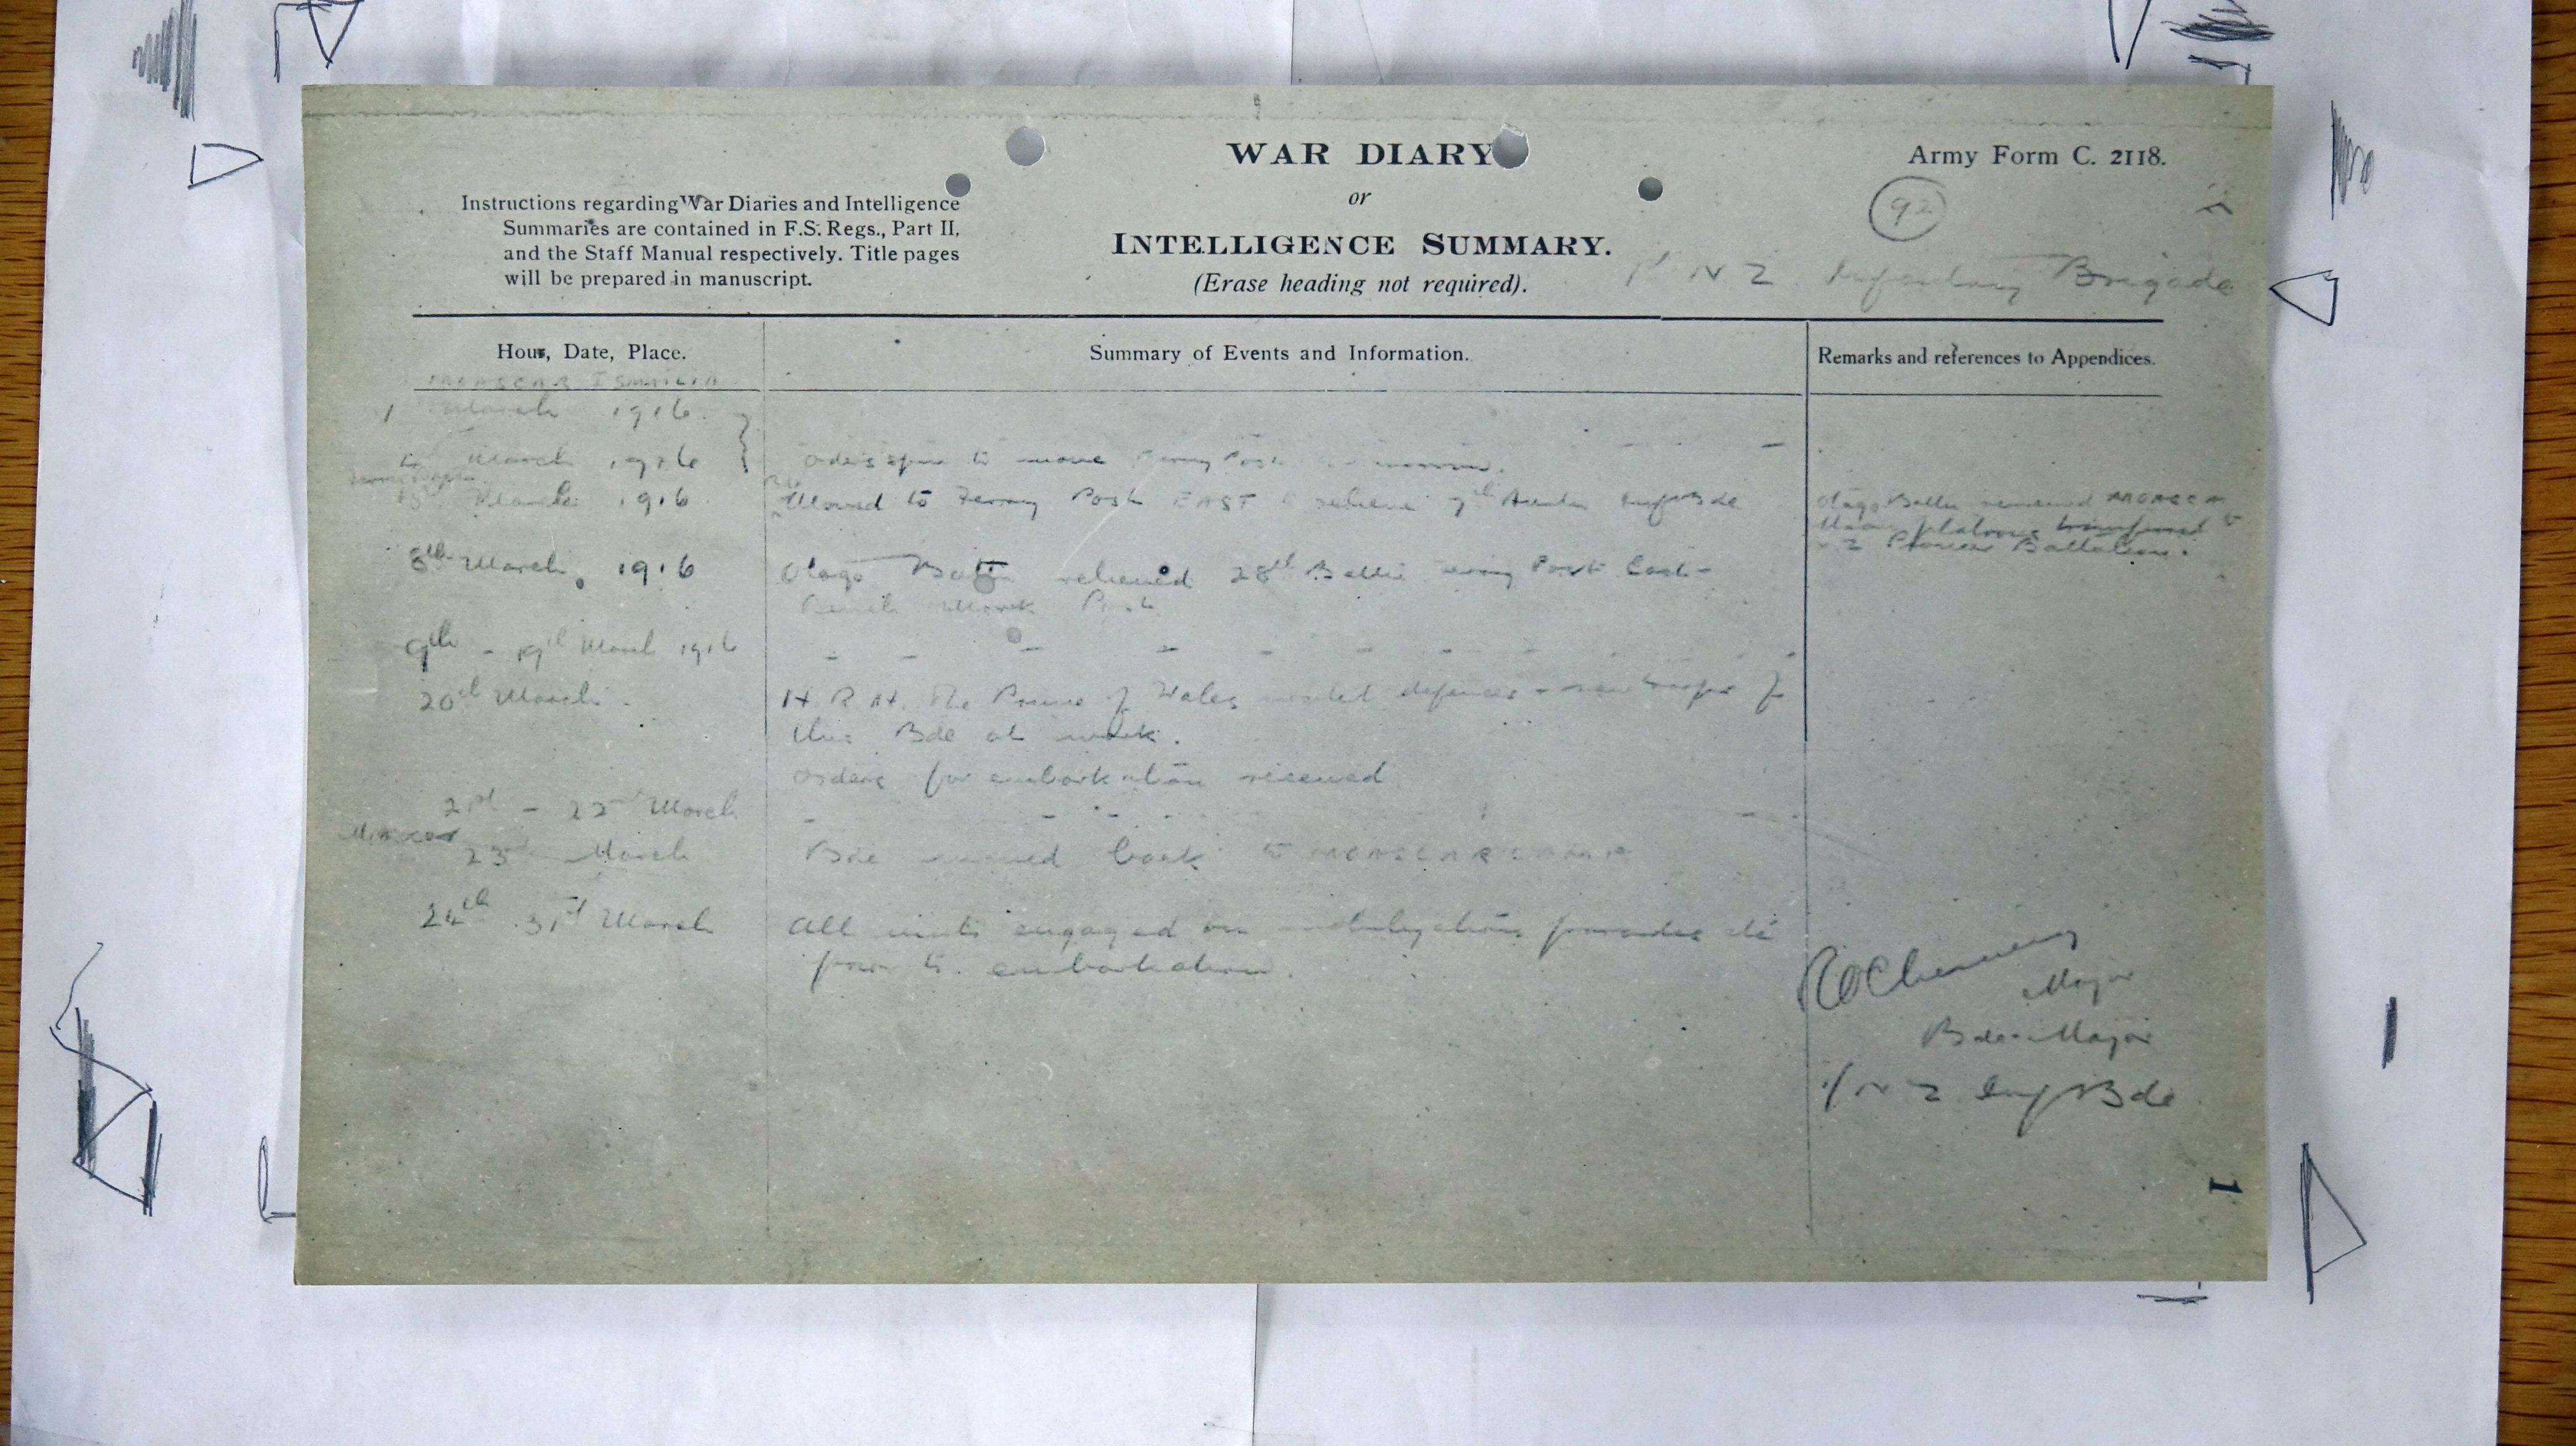 WAR DIARY
or
INTELLIGENCE SUMMARY.
(Erase heading not required).
Army Form C. 2118.
92
Instructions regarding War Diaries and Intelligence
Summaries are contained in F.S. Regs., Part II,
and the Staff Manual respectively. Title pages
will be prepared in manuscript.
1st N Z Infantry Brigade
Hour, Date, Place.
Summary of Events and Information.
Remarks and references to Appendices.
MOASCAR ISMAILIA
1 March 1916
to March 1916
Orders to move Ferry Post
March 1916
Moved to Ferry Post EAST to relieve Inf Bde
Otago Battn remained MOASCAR
Maori platoons transferred to
N Z Pioneer Battalion.
8th March, 1916
Otago Battn relieved 28th Battn Ferry Post East -
Post
9th - 19th March 1916
20th March
H.R.H. The Prince of Wales visited defences & saw troops of
this Bde at work.
Orders for embarkation received
21st - 22nd March
Moascar
23 March
Bde moved back to MOASCAR CAMP
24th 31st March
All units engaged on mobilization parades etc
prior to embarkation.
Major
Bde Major
1/N Z Inf Bde
1